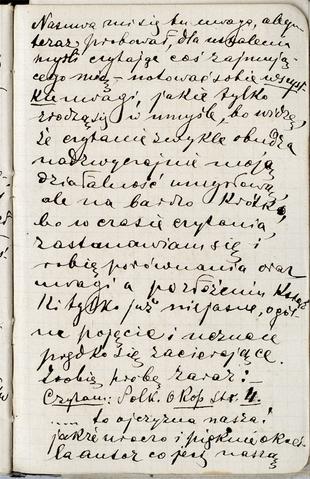 Nasuwa mi się tu uwaga, abym
teraz próbował, dla ustalenia
myśli czytając coś zajmują-
cego mię – notować sobie wszyst-
kie uwagi, jakie tylko
zrodzą się w umyśle, bo widzę,
że czytanie zwykle obudza
nadzwyczajnie moją
działalność umysłową,
ale na bardzo krótko,
bo w czasie czytania,
zastanawiam się i
robię porównania oraz
uwagi a po złożeniu książ-
ki tylko już niejasne, ogól-
ne pojęcie i uczucie
prędko się zacierające.
Zrobię próbę zaraz! –
Czytam: Polk. 6 Kop str. 4.
.... to ojczyzna nasza!
jakże uroczo i pięknie okreś-
la autor co jest naszą